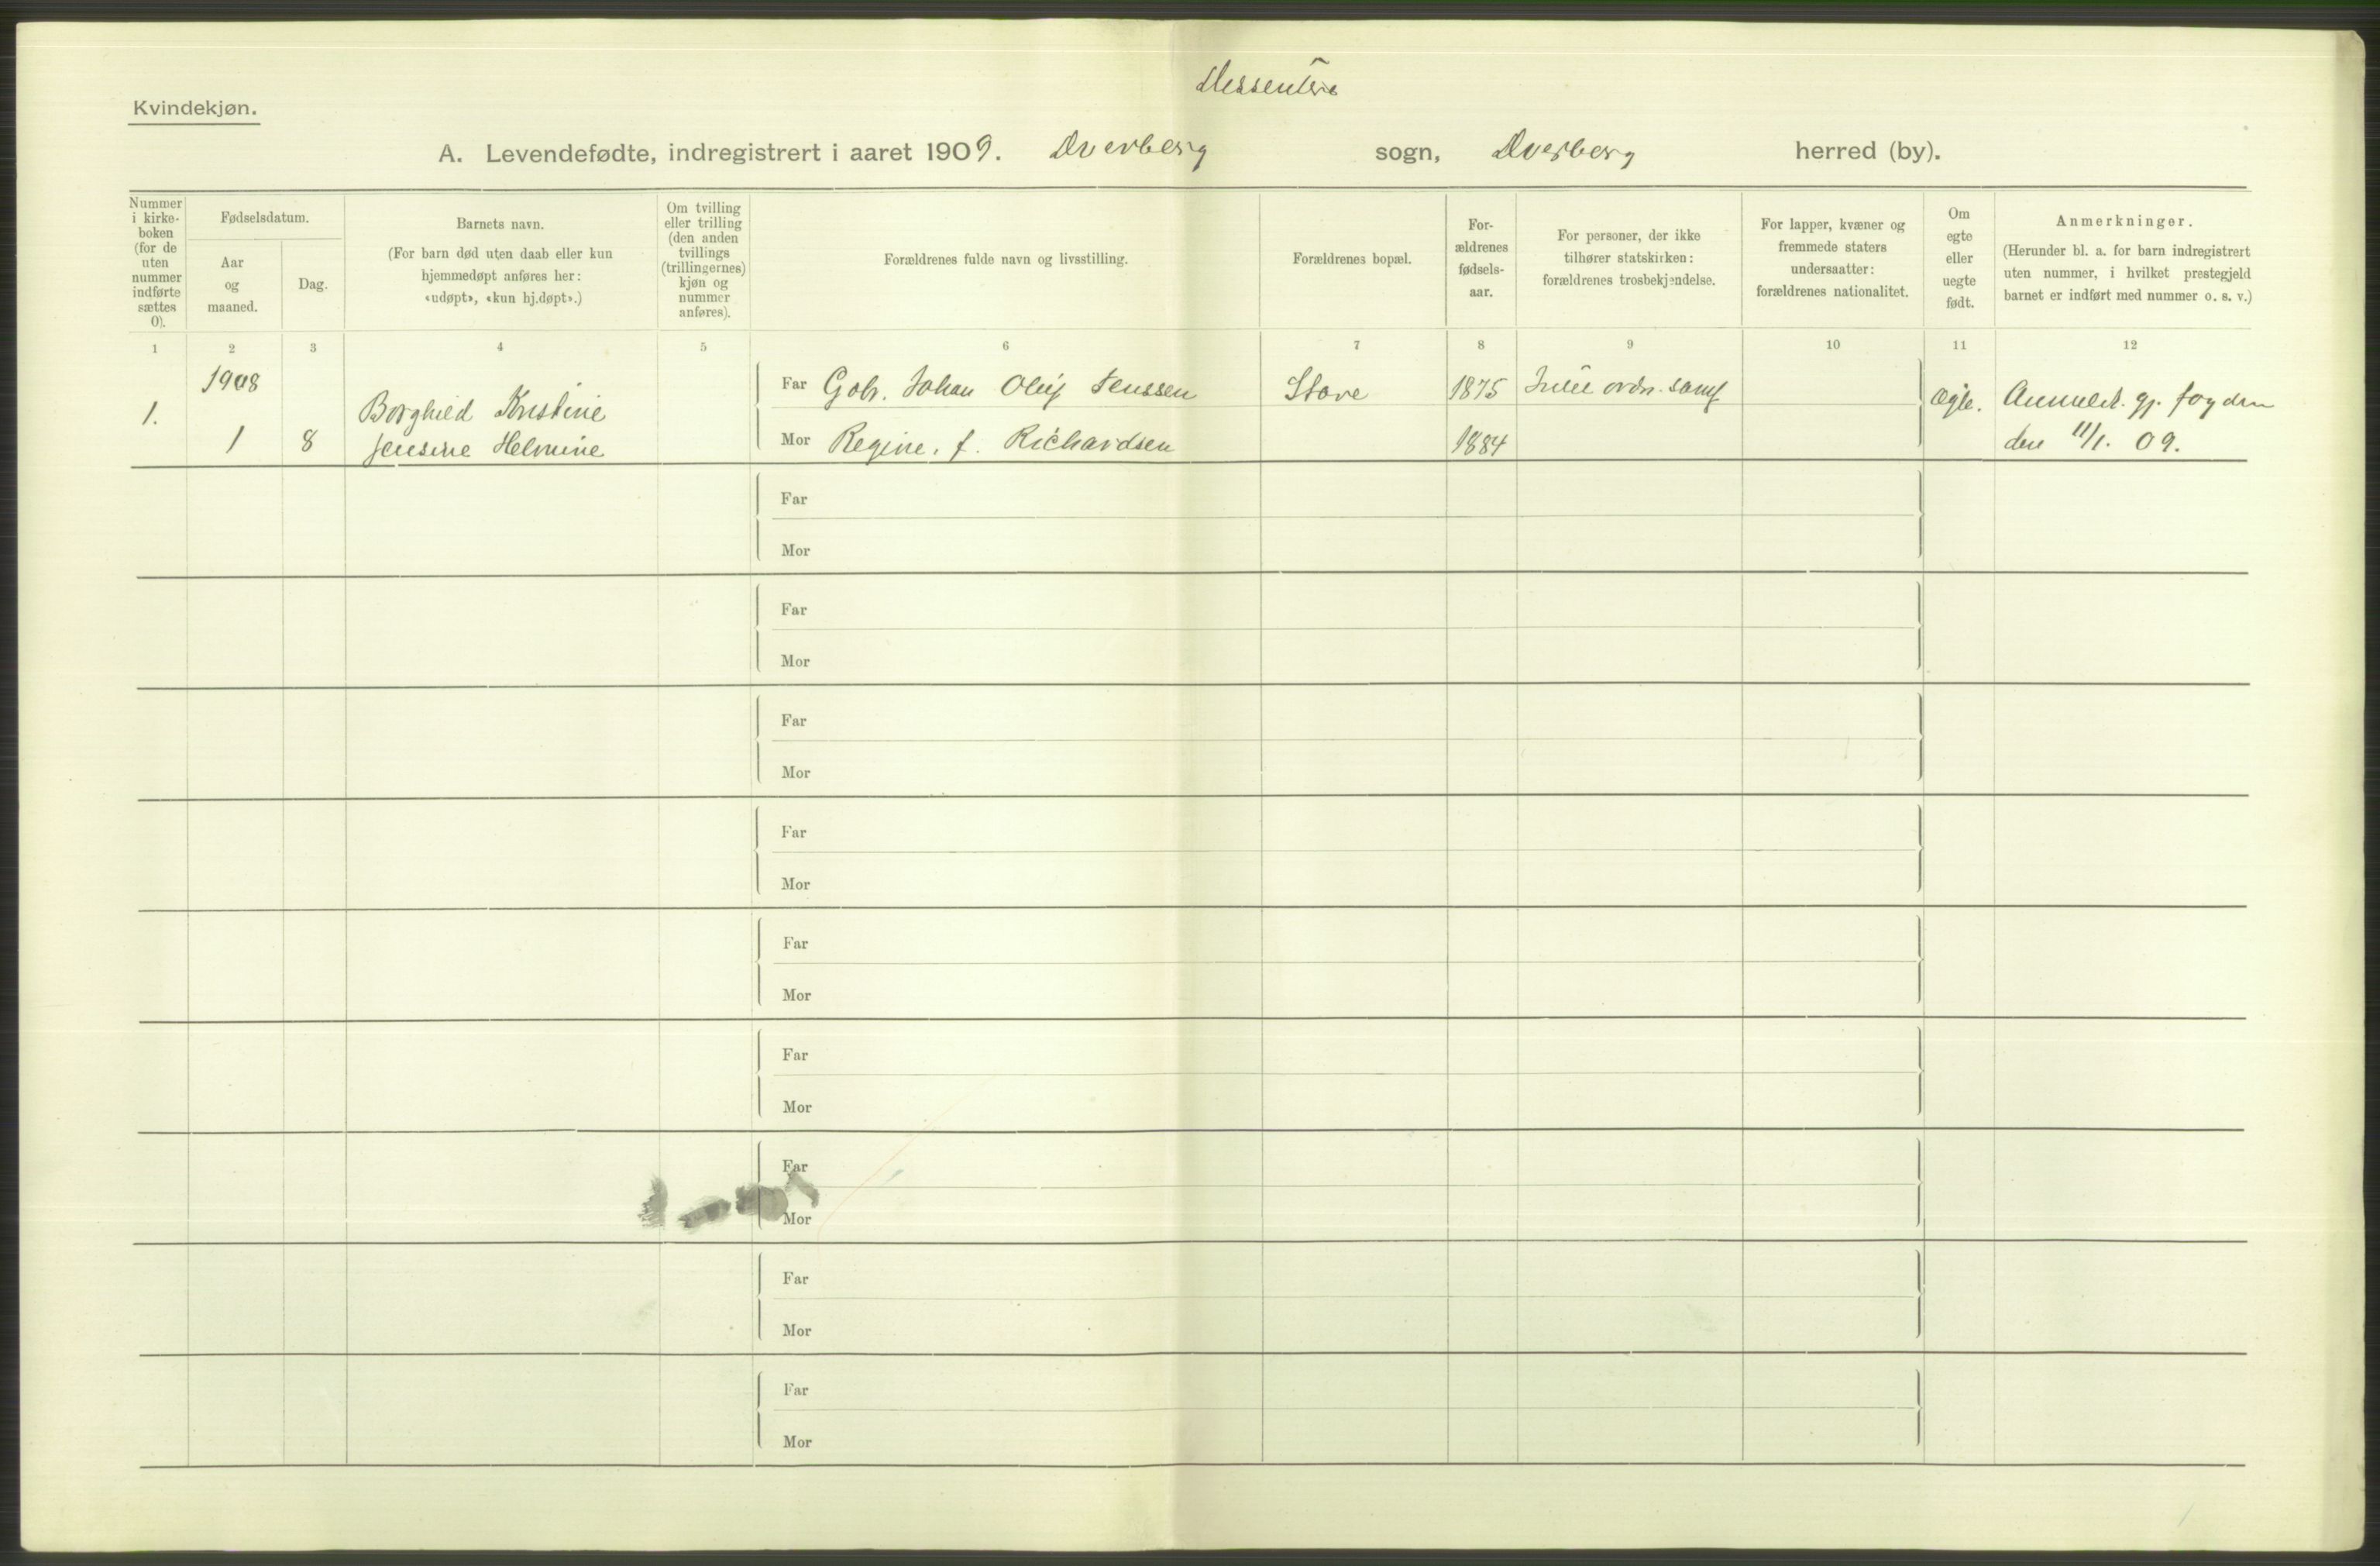 Dissentere
Kvindekjøn.
A. Levendefødte, indregistrert i aaret 1909. Dverberg sogn, Dverberg herred (by).
Nummer
i kirke-
boken
(for de
uten
nummer
indførte
sættes
0).
Fødselsdatum.
Aar
og
maaned.
Dag.
Barnets navn.
(For barn død uten daab eller kun
hjemmedøpt anføres her:
«udøpt», «kun hj.døpt».)
Om tvilling
eller trilling
(den anden
tvillings
(trillingernes)
kjøn og
nummer
anføres).
Forældrenes fulde navn og livsstilling.
Forældrenes bopæl.
For-
ældrenes
fødsels-
aar.
For personer, der ikke
tilhører statskirken:
forældrenes trosbekjendelse.
For lapper, kvæner og
fremmede staters
undersaatter:
forældrenes nationalitet.
Om
egte
eller
uegte
født.
Anmerkninger.
(Herunder bl. a. for barn indregistrert
uten nummer, i hvilket prestegjeld
barnet er indført med nummer o. s. v.)
1 2 3 4 5 6 7 8 9 10 11 12
1908
1.
1 8
Borghild Kristine
Jensine Helmine
Far Gbr. Johan Oluf Jenssen Stave 1875
Mor Regine, f. Richardsen 1884
Ægte.
Anmeldt gj. fogden
den 11/1. 09.
Far
Mor
Far
Mor
Far
Mor
Far
Mor
Far
Mor
Far
Mor
Far
Mor
Far
Mor
Far
Mor